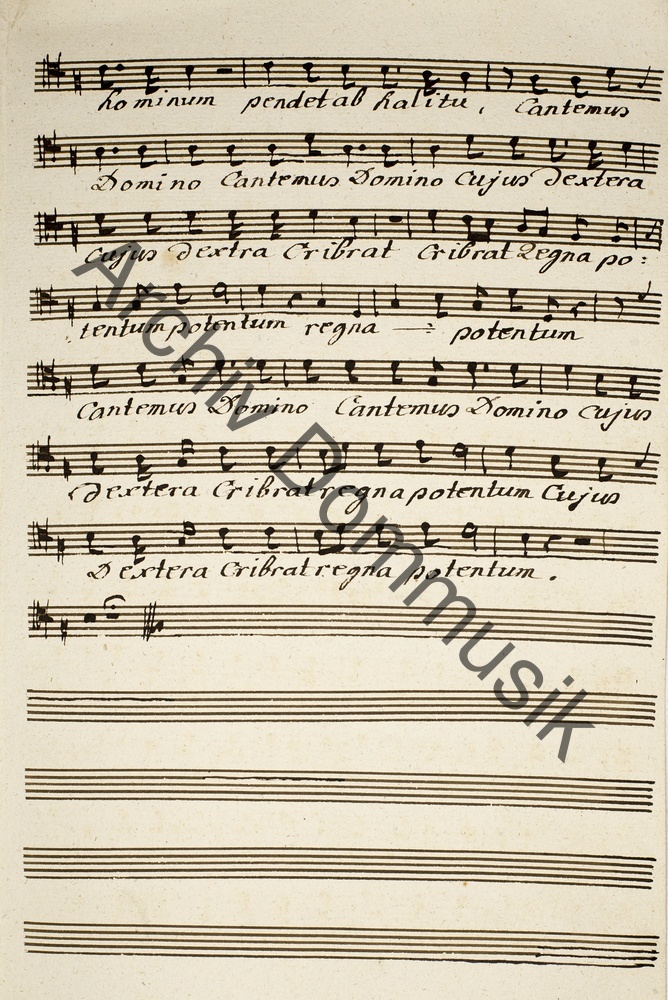 hominum pendet ab halitu, Cantemus
Domino Cantemus Domino Cujus dextera
Cujus dextra Cribrat Cribrat Regna po:
tentum potentum regna —: potentum
Cantemus Domino Cantemus Domino Cujus
dextera Cribrat regna potentum Cujus
Dextera Cribrat regna potentum.
Archiv Dommusik